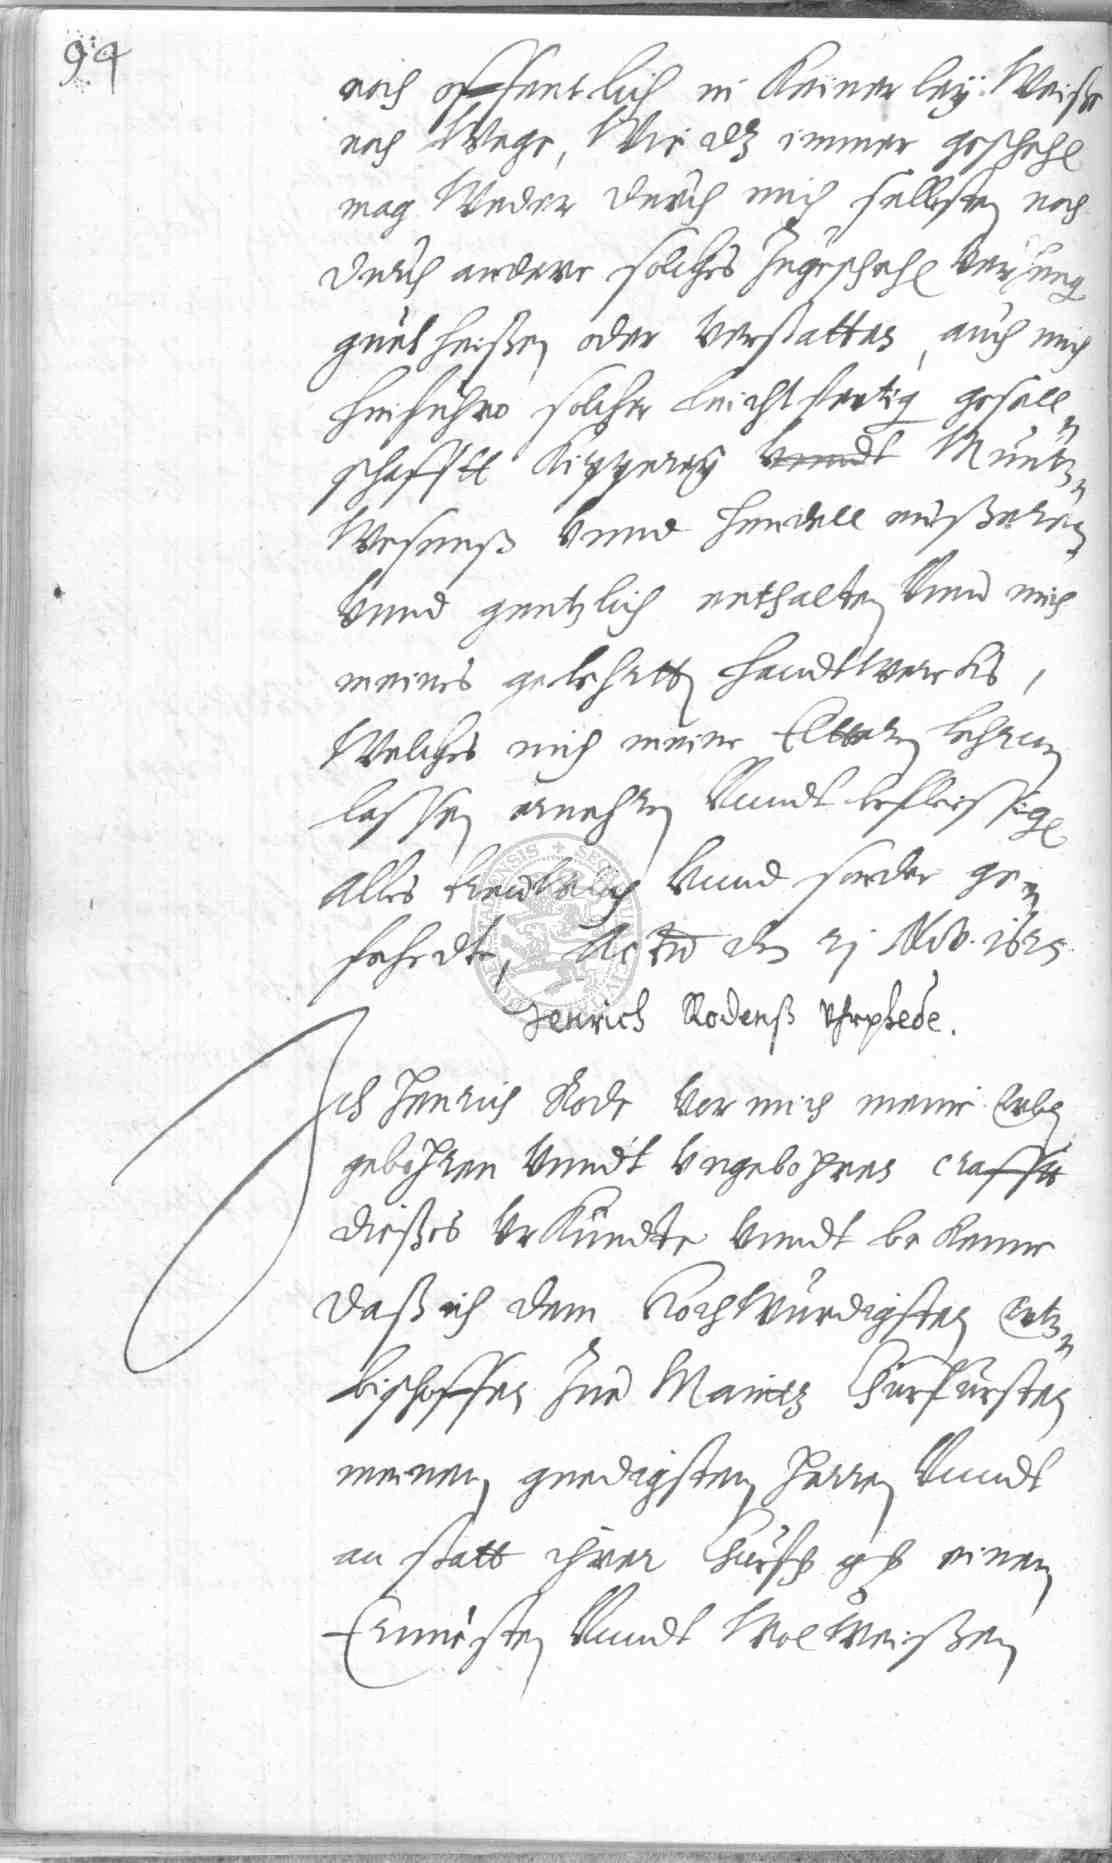 94
noch offentlich in Keinerley Weiße
noch Wege, Wie dz immer geschehe
mag Weder durch mich selbsten noch
durch andere solches Zugeschehe verheng
gutheißen oder verstatten, auch mich
hinführo solcher leichtfertig gesell
schafftt Kipperey vnndt Müntz
Weseneß vnnd handell eußeren
Vnnd gentzlich enthalten Vnd mich
meines gelehrtten handtwercks,
Welches mich meine Elttern lehren
lassen ernehren Vnndt befleissige
alles trewlich vnnd sonder ge
fehrdt, Actu den 21 Nov. 1625
Henrich Rodenß Vhrphede.
Ich Henrich Rode vor mich meine Erben
gebohren vnndt vngebohren crafft
dießes Vrkundte vnndt bekenne
daß ich dem Hochwürdigsten Ertz
bischoffen Zue Maintz Churfürsten
meinen gnedigsten Herren Vnndt
an statt ihrer Churf. g. einen
Ernvesten Vnndt Wolweißen